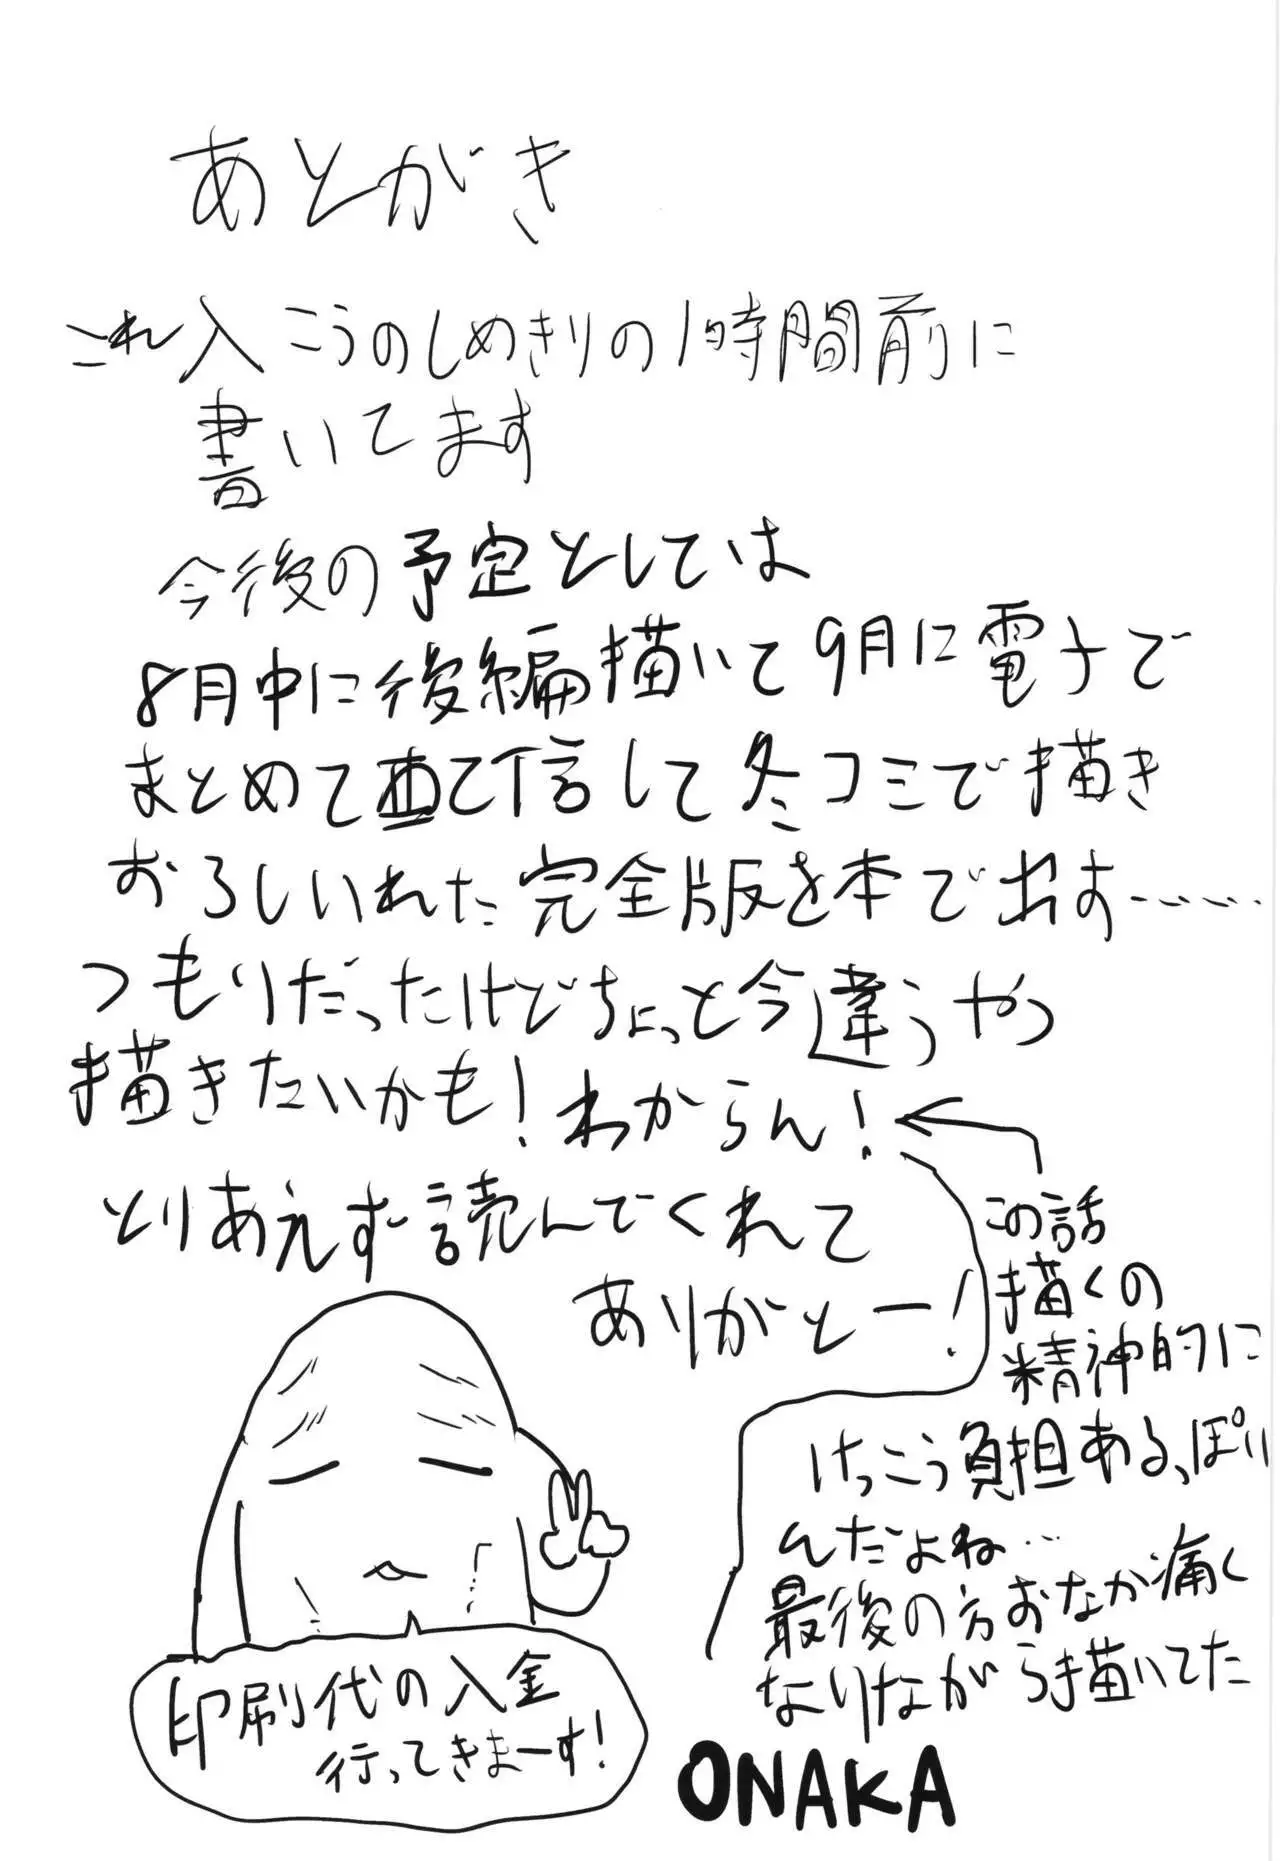 あとがき
これ入こうのしめきりの1時間前に
書いてます
今後の予定としては
8月中に後編描いて9月に電子で
まとめて配信して冬コミで描き
おろしいれた完全版を本で出す……
つもりだったけどちょっと今違うやつ
描きたいかも!わからん!
とりあえず読んでくれて
ありがとー!
この話
描くの
精神的に
けっこう負担あるっぽい
んだよね…
最後の方おなか痛く
なりながら描いてた
印刷代の入金
行ってきまーす!
ONAKA